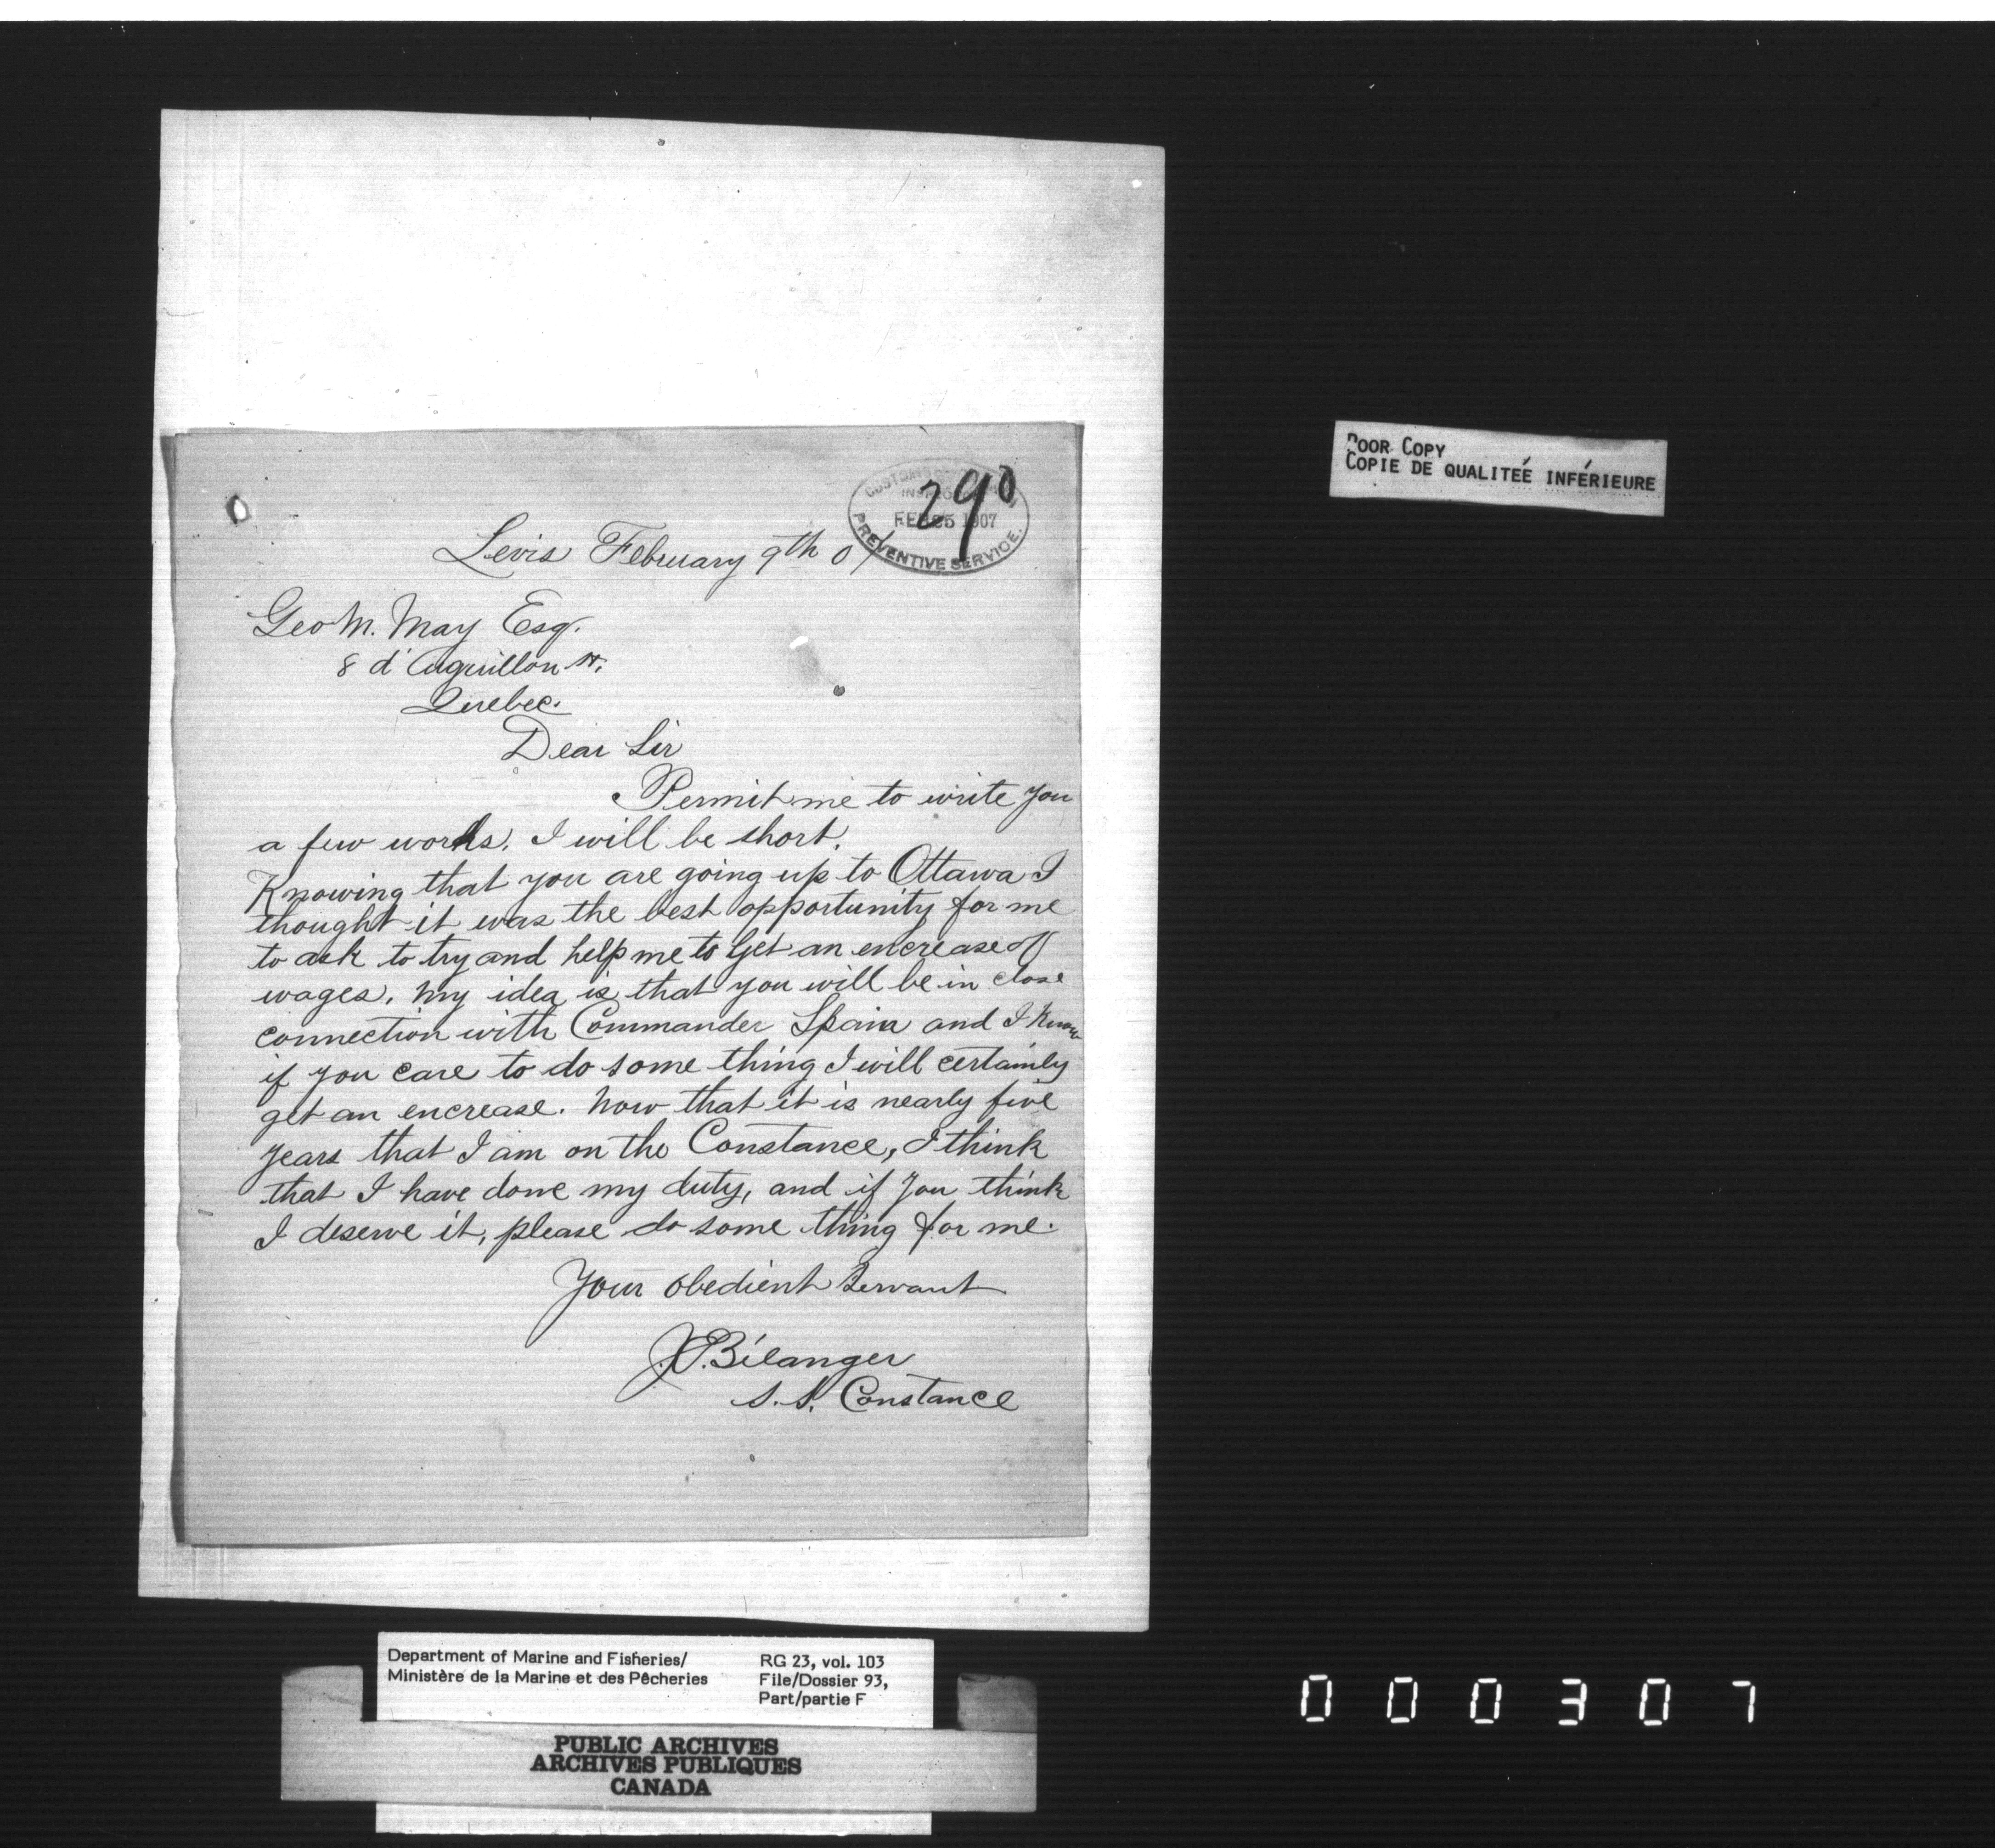 290
CUSTOMS
FEB 25 1907
PREVENTIVE SERVICE.
Levis February 9th 07
Geo M. May Esq.
8 d'Aiguillon st.
Quebec.
Dear Sir
Permit me to write you
a few words. I will be short.
Knowing that you are going up to Ottawa I
thought it was the best opportunity for me
to ask to try and help me to get an encrease of
wages. My idea is that you will be in close
connection with Commander Spain and I know
if you care to do some thing I will certainly
get an encrease. Now that it is nearly five
years that I am on the Constance, I think
that I have done my duty, and if you think
I deserve it, please do some thing for me.
Your obedient Servant
Bélanger
S.S. Constance
POOR COPY
COPIE DE QUALITEÉ INFÉRIEURE
Department of Marine and Fisheries/
Ministère de la Marine et des Pêcheries
RG 23, vol. 103
File/Dossier 93,
Part/partie F
PUBLIC ARCHIVES
ARCHIVES PUBLIQUES
CANADA
000307